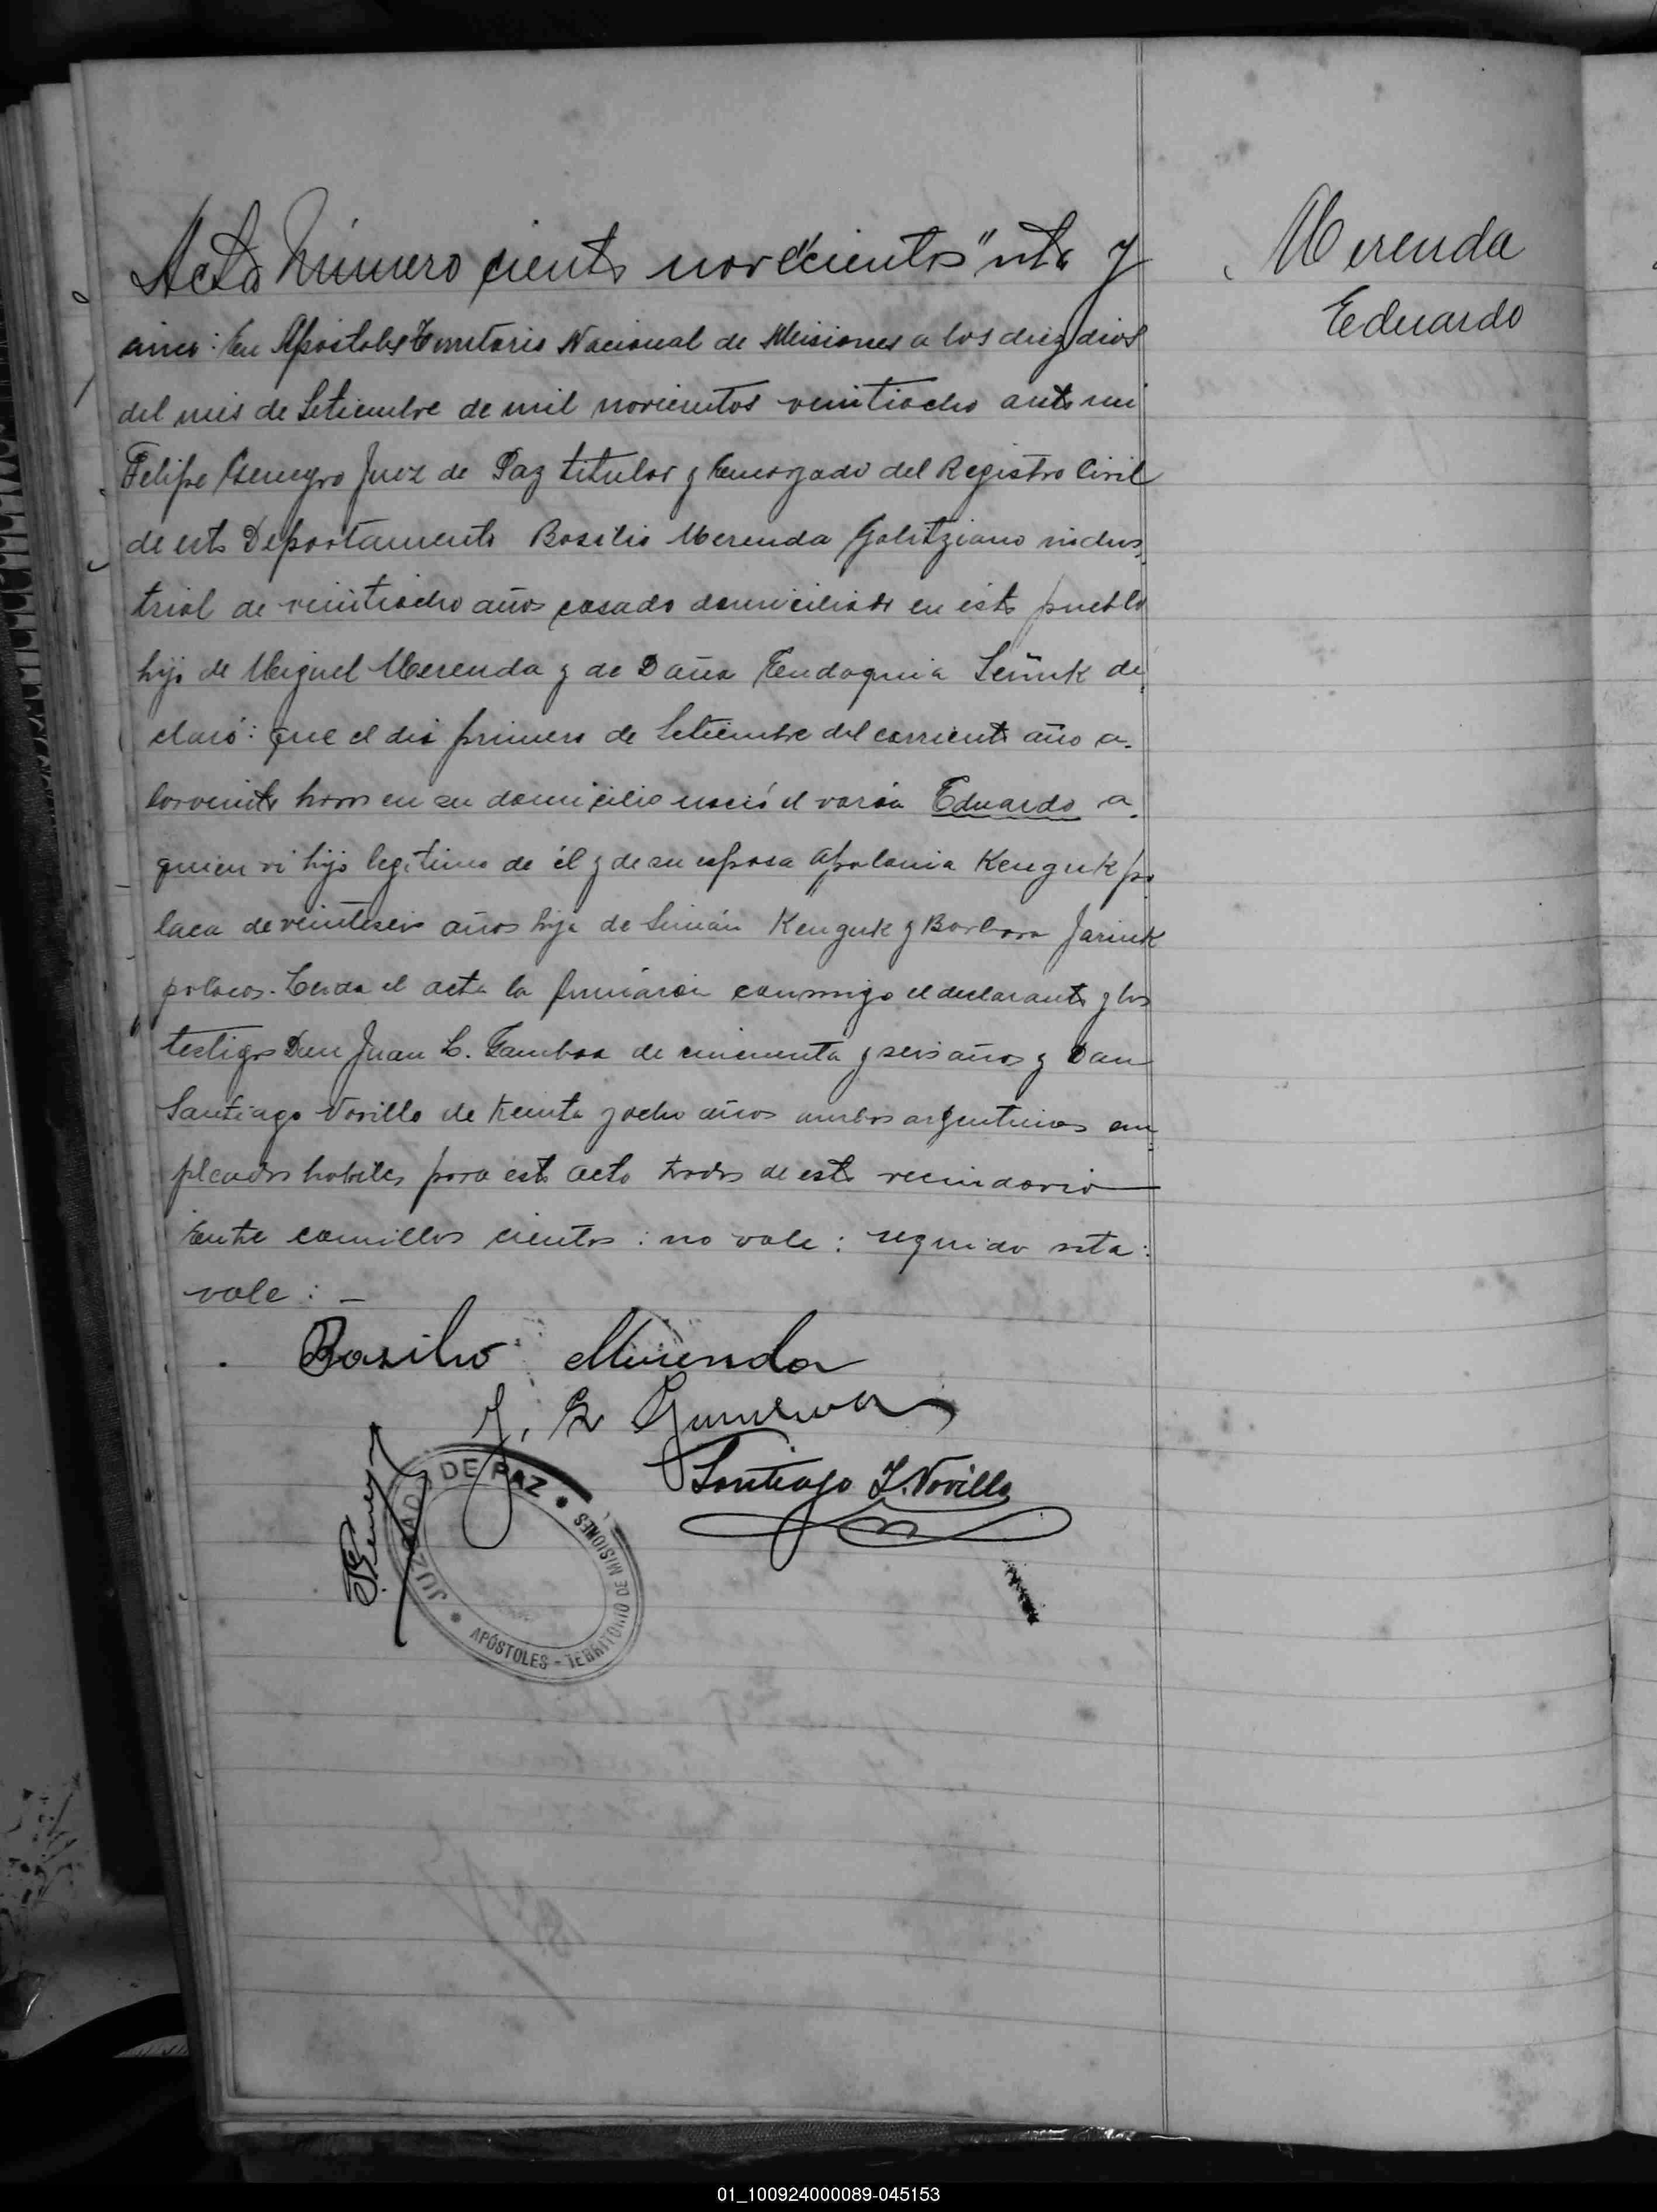 Acta Número ciento nove"cientos"nta y
cinco: En Apostoles Territorio Nacional de Misiones a los diez dias
del mes de Setiembre de mil novecientos veintiocho ante mi
Felipe Juez de Paz titular y Encargado del Registro Civil
de este Departamento Basilio Merenda Galitziano indus-
trial de veintiocho años casado domiciliado en este pueblo
hijo de Miguel Merenda y de Doña Eudoquia de
claró: que el dia primero de Setiembre del corriente año a
las veinte horas en su domicilio nació el varón Eduardo a
quien vi hijo legitimo de él y de su esposa Apolonia Kenguk po
laca de veinteseis años hija de Simón Kenguk y Barbara
polacos. Leida el acta la firmaron conmigo el declarante y los
testigos Don Juan L. Gamboa de cincuenta y seis años y Don
Santiago Novillo de treinta y ocho años ambos argentinos em
pleados habiles para este acto todos de este vecindario
Entre comillas cientos: no vale: seguido nta:
vale: –
Basilio Merenda
Santiago J. Novillo
JUZGADO DE PAZ
APÓSTOLES - TERRITORIO DE MISIONES
Merenda
Eduardo
01_100924000089-045153